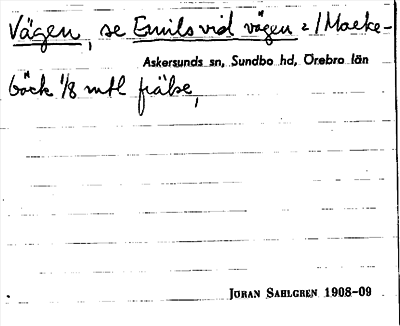 Vägen, se Emils vid vägen = /Macke-
Askersunds sn, Sundbo hd, Örebro län
bäck 1/8 mtl frälse,
JÖRAN SAHLGREN 1908-09